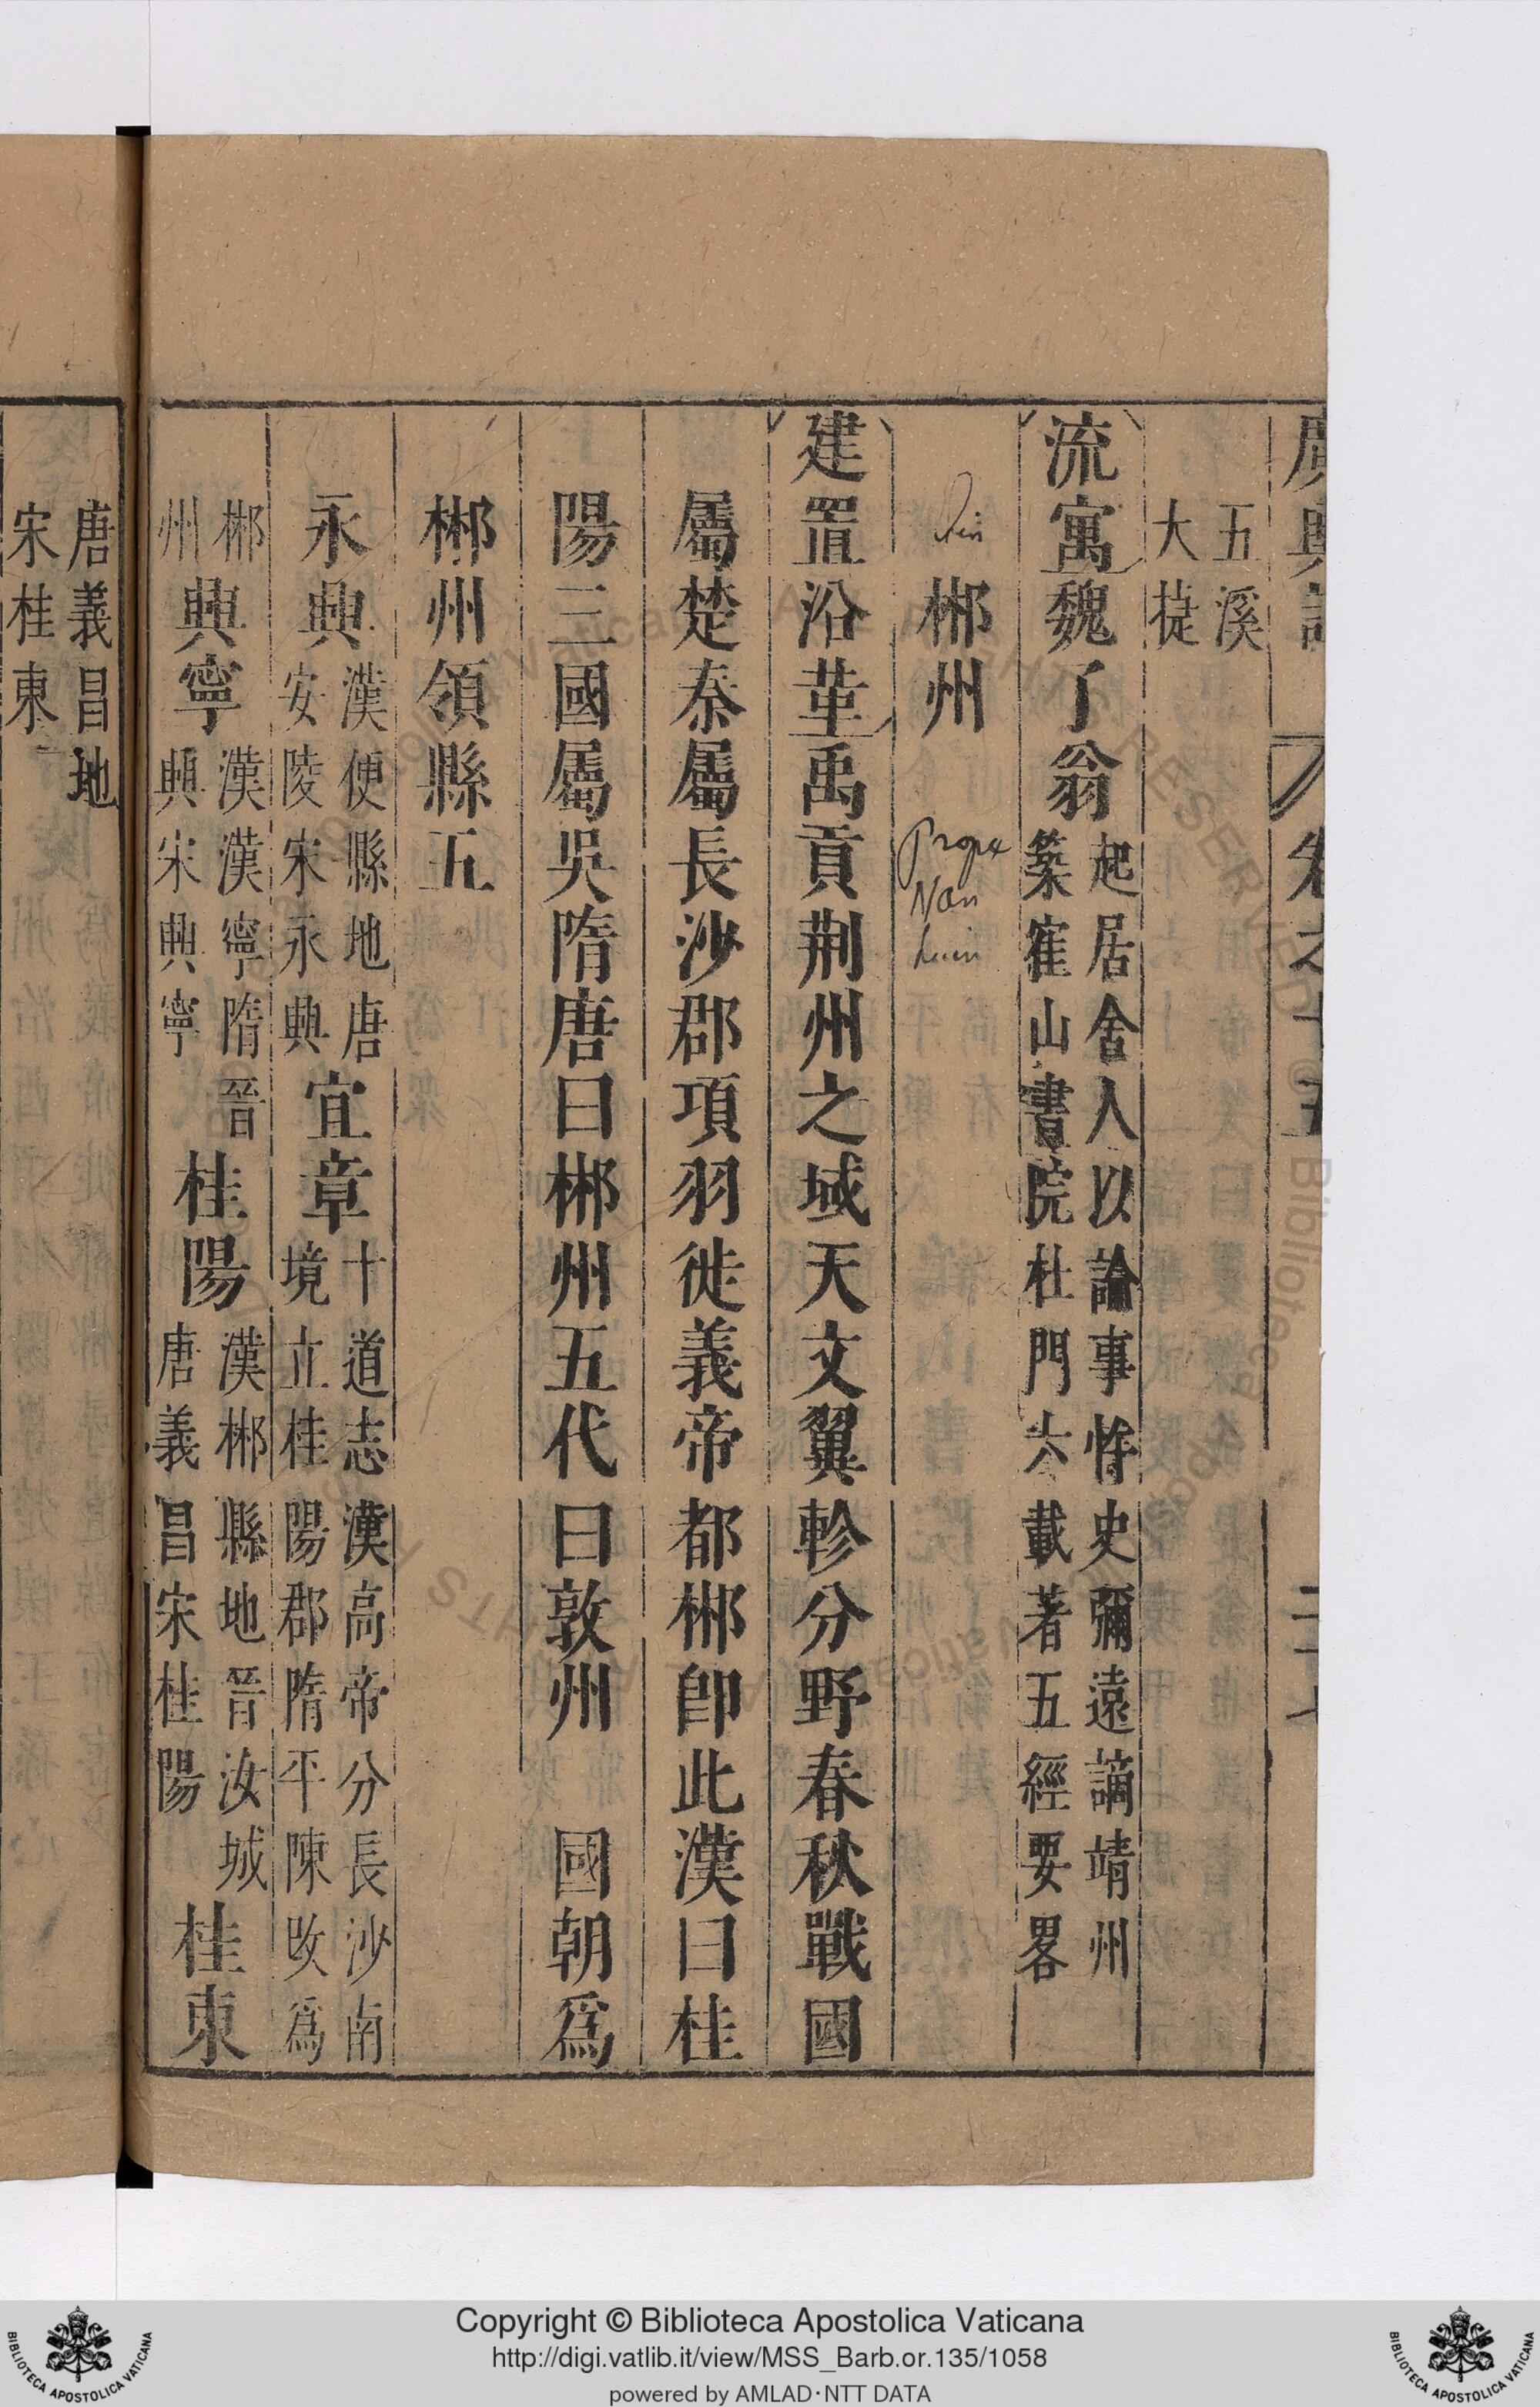 廣輿記 卷之十五
五溪
大㨗
流寓魏了翁起居舍人以論事忤史彌遠謫靖州
築寉山書院杜門六載著五經要畧
郴州
Prope
Nan
建置沿革禹貢荆州之域天文翼軫分野春秋戰國
屬楚秦屬長沙郡項羽徙義帝都郴卽此漢曰桂
陽三國屬吳隋唐曰郴州五代曰敦州 國朝爲
郴州領縣五
永興漢便縣地唐
安陵宋永興宜章十道志漢高帝分長沙南
境立桂陽郡隋平陳改爲
郴
州興寧漢漢寧隋晉
興宋興寧桂陽漢郴縣地晉汝城
唐義昌宋桂陽桂東
唐義昌地
宋桂東
Copyright © Biblioteca Apostolica Vaticana
http://digi.vatlib.it/view/MSS_Barb.or.135/1058
powered by AMLAD·NTT DATA
BIBLIOTECA APOSTOLICA VATICANA
BIBLIOTECA APOSTOLICA VATICANA